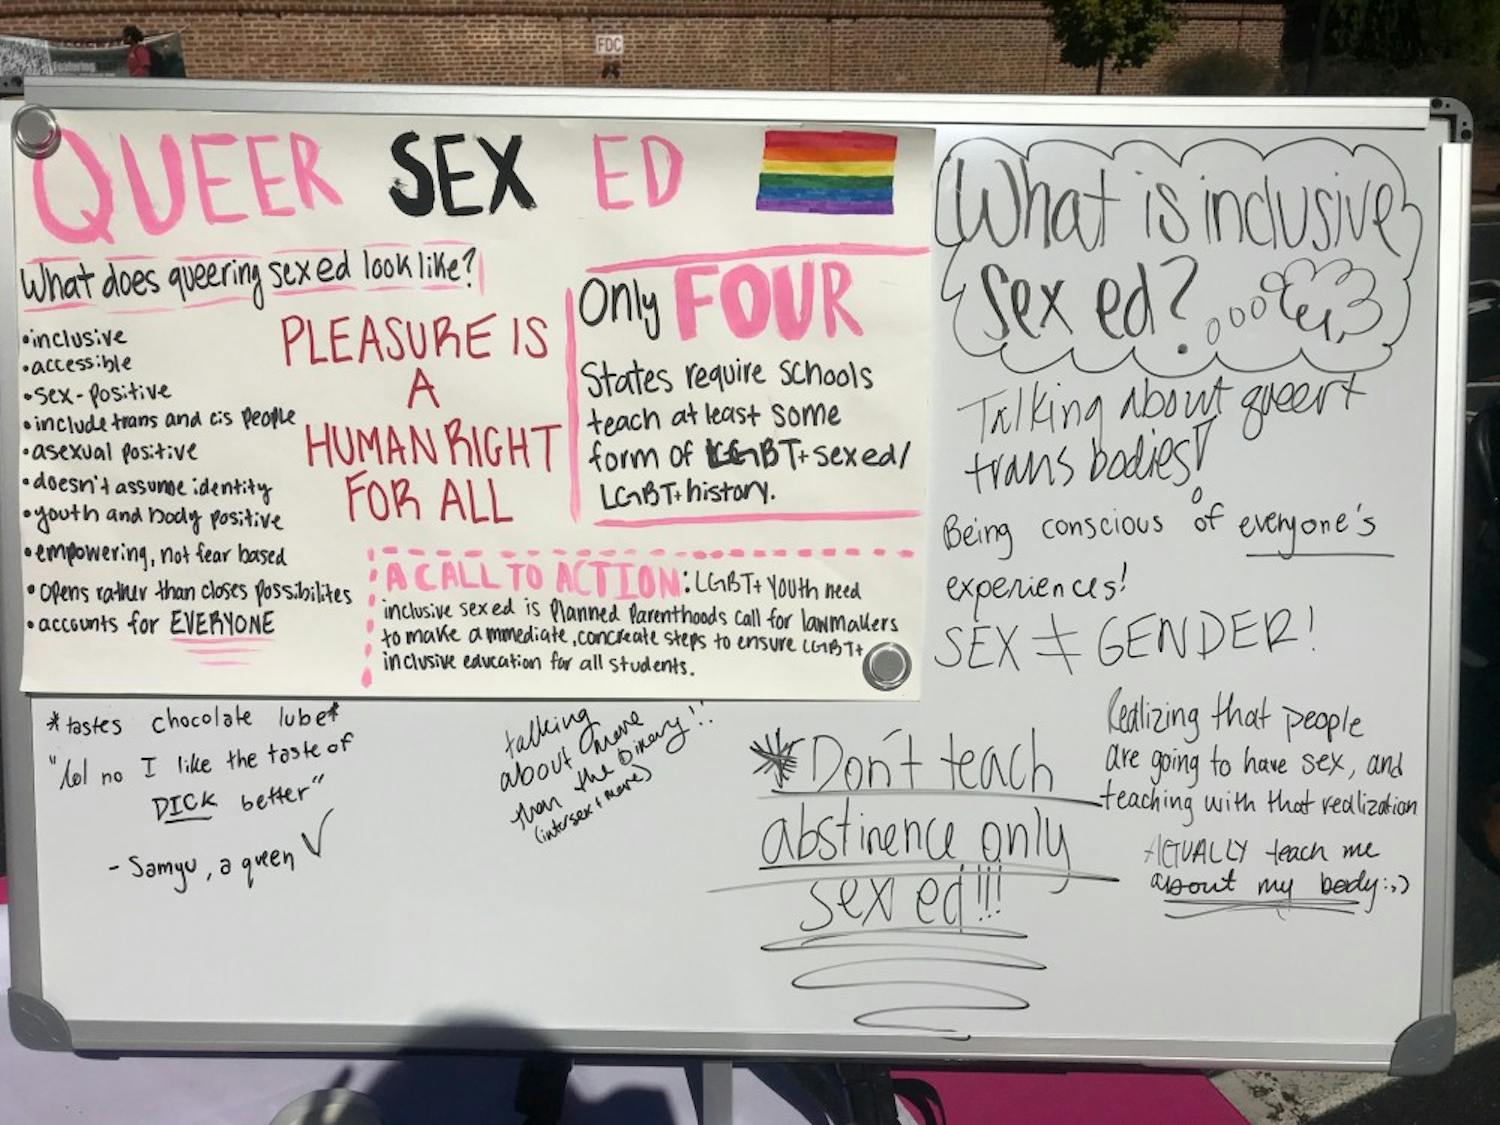 Featuring
FDC
QUEER SEX ED
What does queering sex ed look like?
• inclusive
• accessible
• sex-positive
• include trans and cis people
• asexual positive
• doesn't assume identity
• youth and body positive
• empowering, not fear based
• opens rather than closes possibilites
• accounts for EVERYONE
PLEASURE IS
A
HUMAN RIGHT
FOR ALL
Only FOUR
States require schools
teach at least some
form of LGBT+ sex ed/
LGBT+ history.
A CALL TO ACTION: LGBT+ Youth need
inclusive sex ed is Planned Parenthoods call for lawmakers
to make a mmediate, concreate steps to ensure LGBT+
inclusive education for all students.
What is inclusive
sex ed?
Talking about queer +
trans bodies!
Being conscious of everyone's
experiences!
SEX ≠ GENDER!
Realizing that people
are going to have sex, and
teaching with that realization
ACTUALLY teach me
about my body :,)
*tastes chocolate lube*
"lol no I like the taste of
DICK better"
- Samyu, a queen ✓
talking
about more
than the binary!!
(intersex + more)
* Don't teach
abstinence only
sex ed!!!